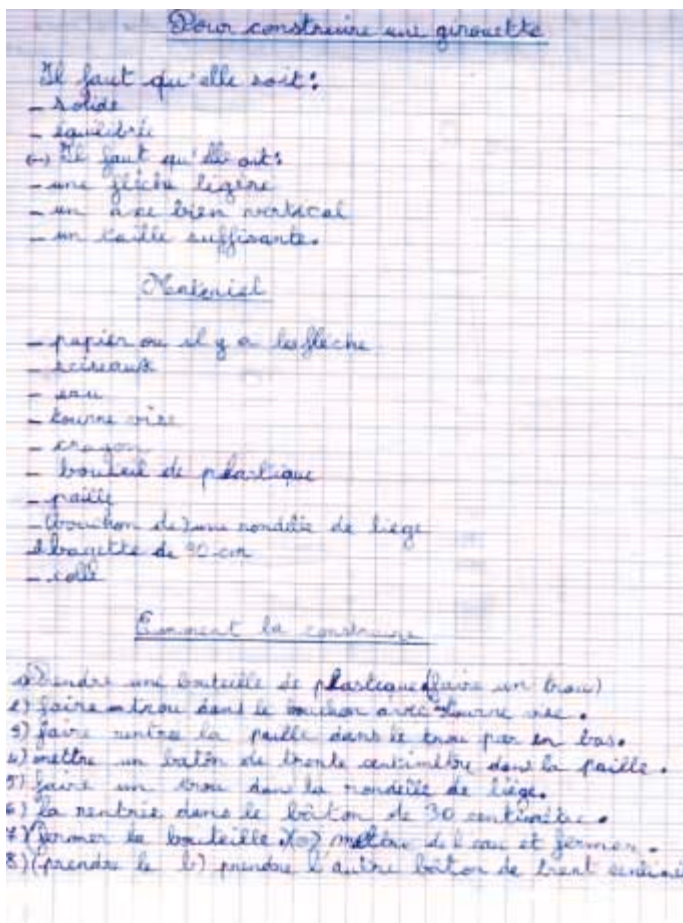 Pour construire une girouette
Il faut qu'elle soit :
- solide
- équilibrée
(-) Il faut qu'elle ait :
- une flèche légère
- un axe bien vertical
- un taille suffisante.
Materiel
- papier ou il y a la flèche
- ciseaux
- eau
- tourne vise
- crayon
- bouteil de plastique
- paille
- (bouchon de) une rondelle de liège
bagette de 30 cm
- colle
Comment la construire
1) Prendre une bouteille de plastique (faire un trou)
2) faire un trou dans le bouchon avec tourne vise.
3) faire rentre la paille dans le trou par en bas.
4) mettre un batôn de trente centimètre dans la paille.
5) faire un trou dans la rondelle de liège.
6) la rentrée dans le bâton de 30 centimètre.
7) fermer la bouteille mettre de l'eau et fermer.
8) (prendre le b) prendre l'autre bâton de trent